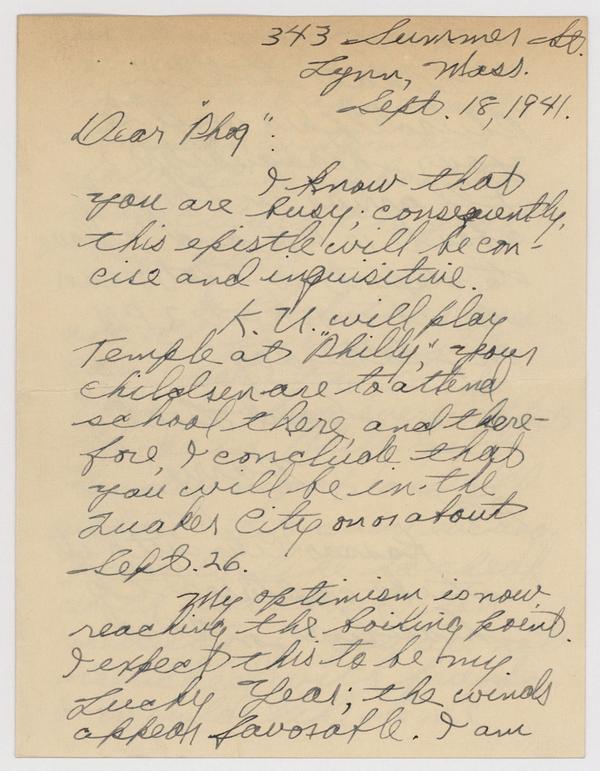 343 Summer St.
Lynn, Mass.
Sept. 18, 1941.
Dear "Phog":
I know that
you are busy; consequently,
this epistle will be con-
cise and inquisitive.
K. U. will play
Temple at "Philly," your
children are to attend
school there, and there-
fore, I conclude that
you will be in the
Quaker City on or about
Sept. 26.
My optimism is now
reaching the boiling point.
I expect this to be my
Lucky Year; the winds
appear favorable. I am